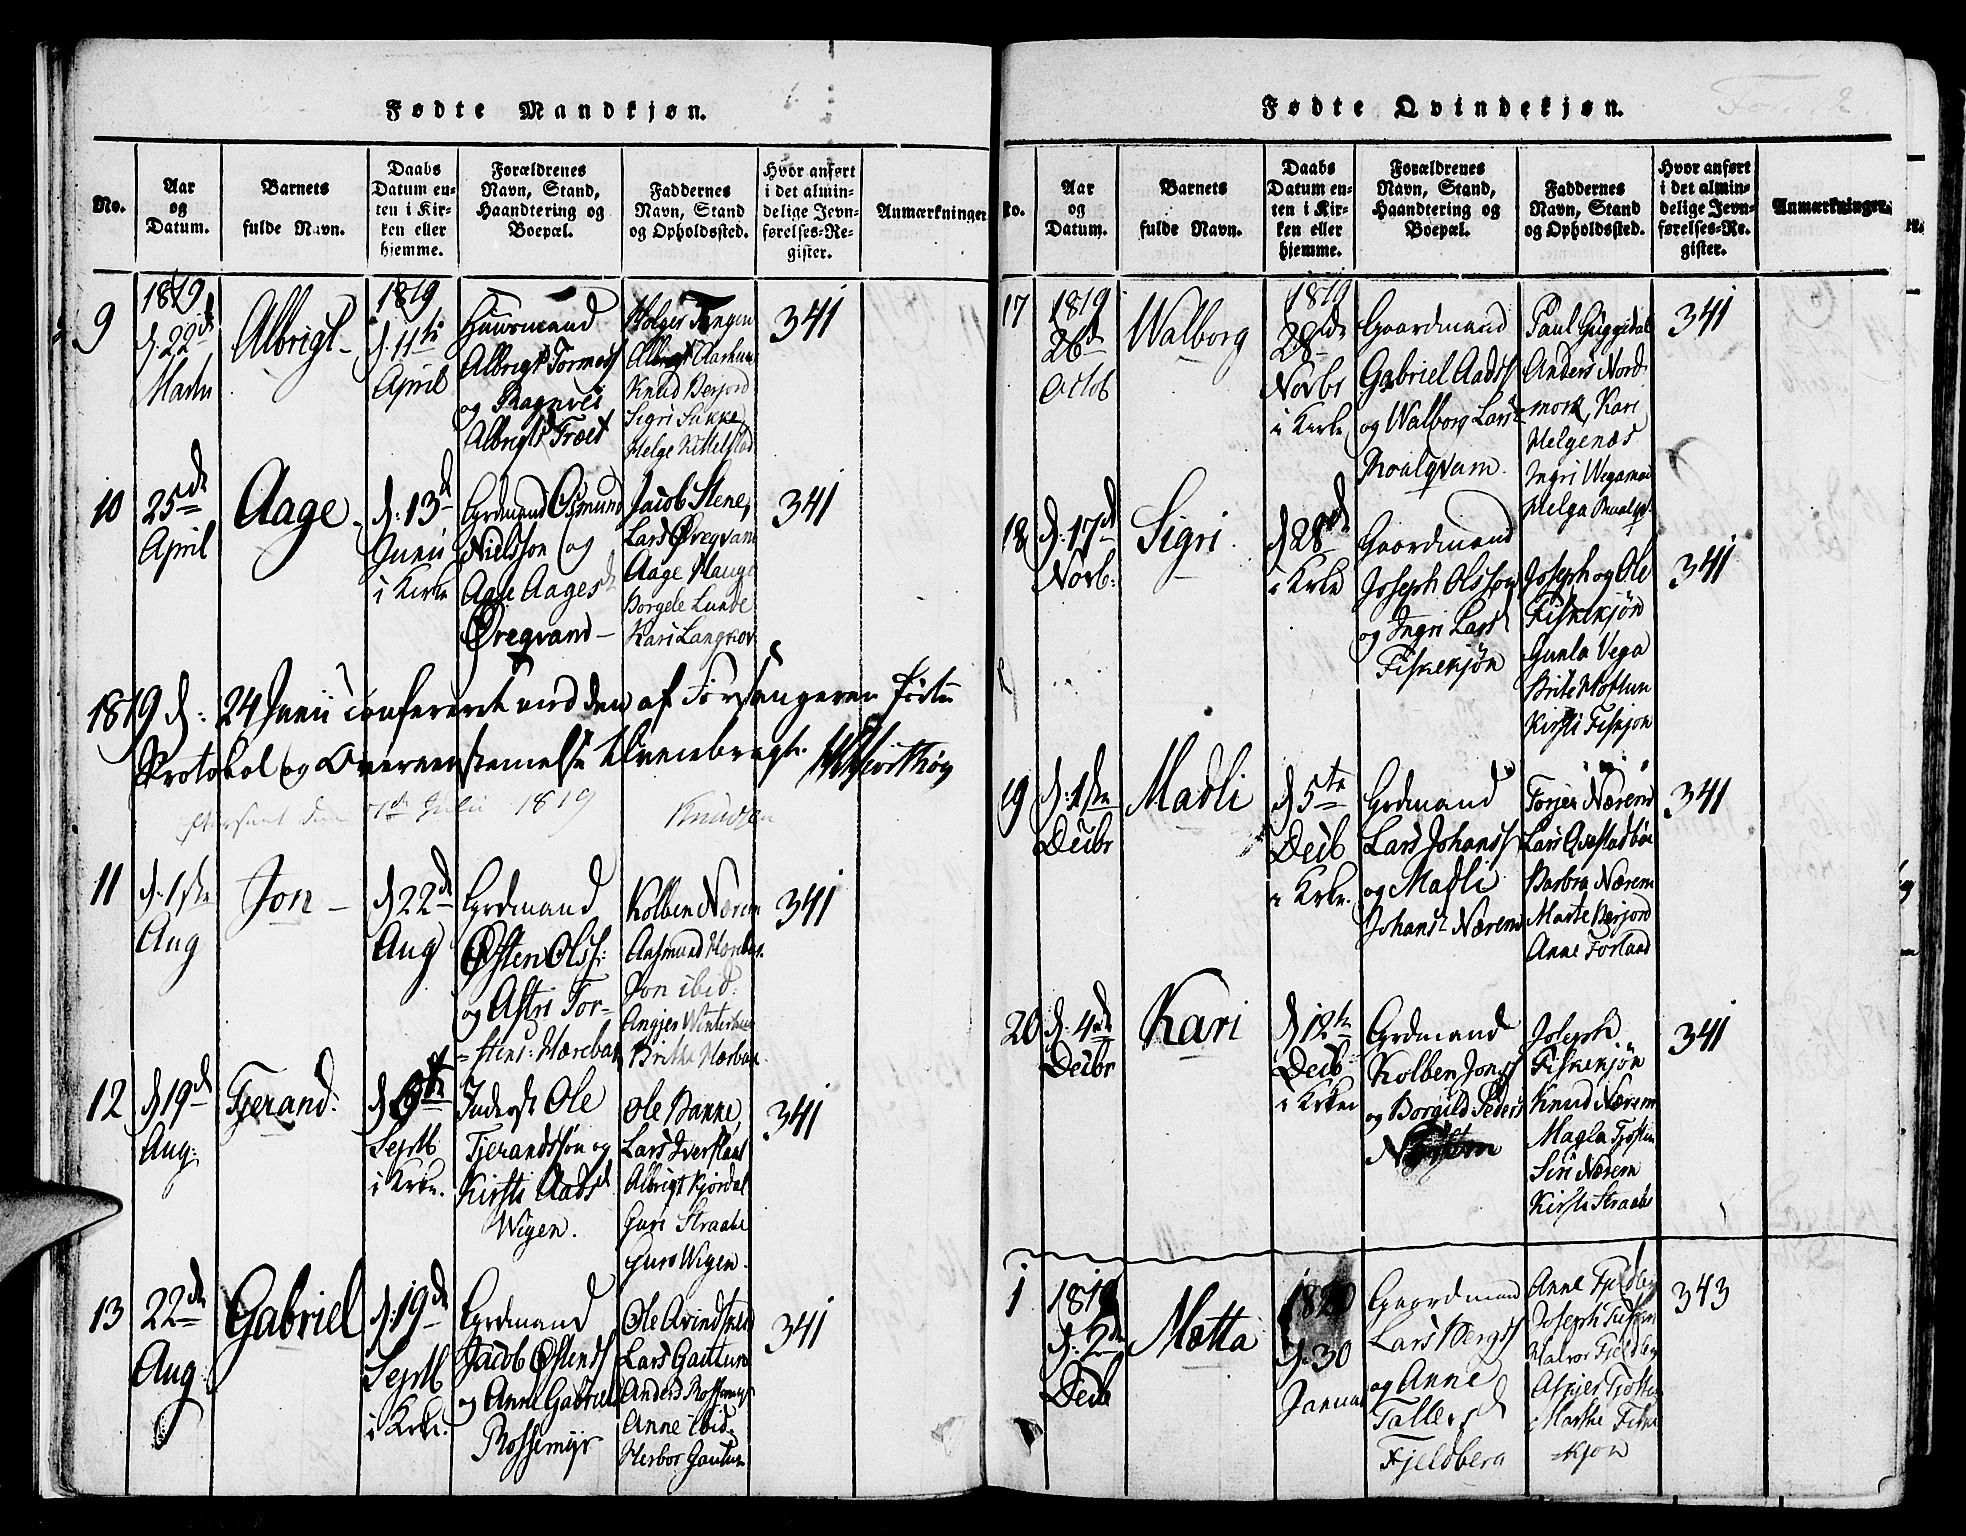 Fødte Mandkjøn.
No.
Aar
og
Datum.
Barnets
fulde Navn.
Daabs
Datum en-
ten i Kir-
ken eller
hjemme.
Forældrenes
Navn, Stand,
Haandtering og
Boepæl.
Faddernes
Navn, Stand
og Opholdssted.
Hvor anført
i det almin-
delige Jevn-
førelses-Re-
gister.
Anmærkninger
9
1819
d. 22de
Martii
Albrigt
1819
d. 11te
April
Huusmand
Albrigt Tormods
og Ragnvei
Albrigtsd Træet
Holger Tengen
Albrigt Aarhuus
Knud Berjord
Sigri
Helge Kittelstad
341
10
25de
April
Aage
d: 13de
Junii
i Kirke
Grdmand Osmund
Nielsson og
Aase Aagesd
Øregvand
Jacob Stene,
Lars Øregvam
Aage Hauge
Borgele Lunde
Kari
341
1819 d: 24 Junii confereret med den af Forsangeren førte
Protokol og Overeensstemelse tilveiebragt.
7de Julii 1819
Knudsen
11
d. 1ste
Aug
Jon
d 22de
Aug
Grdmand
Østen Olss:
og Astri Tor-
stens: Hærebak
Kolben Nærem
Aasmund
Jon ibid:
Angjer
Britha Hærbak
341
12
d 19de
Aug:
Tjerand.
d
Septb
i Krke.
Inderst Ole
Tjerandssøn og
Kirsti Aadsd
Wigen.
Ole Bakke,
Lars
Albrigt Kjørdal
Guri Straabe
Guro Wigen.
341
13
22de
Aug:
Gabriel
d: 19de
Septb
i Krke.
Grdmand
Jacob Østens
og Anne Gabriel
Rossemyr
Ole
Lars Gautun
Anders Rossemyr
Anne ibid:
Herbor Gautun
341
Fødte Qvindekjøn.
No.
Aar
og
Datum.
Barnets
fulde Navn.
Daabs
Datum en-
ten i Kir-
ken eller
hjemme.
Forældrenes
Navn, Stand,
Haandtering og
Boepæl.
Faddernes
Navn, Stand
og Opholdssted.
Hvor anført
i det almin-
delige Jevn-
førelses-Re-
gister.
Anmærkninger.
17
1819
26de
Octob
Walborg
1819
28de
Novbr
i Kirke
Gaardmand
Gabriel Aads
og Walborg Larsd
Roalqvam.
Paul Guggedal
Anders Nord-
mork, Kari
Helgenæs
Ingri
Helga Roalqv.
341
18
d. 17de
Novb:
Sigri.
d 28de
i Krke
Gaardmand
Joseph Olsson
og Ingri Larsd
Fiskekjøn
Joseph og Ole
Fiskekjøn
Gunla Vega
Brite
Kirsti Fiskjon
341
19
d. 1ste
Decbr
Madli
d 5te
Decb
i Krke.
Grdmand
Lars Johans
og Madli
Johansd Nærem
Torjer Nærem
Lars
Barbra Nærem
Marte Berjord
Anne Forland
341
20
d. 4de
Decbr
Kari
d 12te
Decb
i Krken
Grdmand
Kolben Jons
og Borgild Peders
Joseph
Fiskekjøn
Knud Nærem
Magla
Siri Nærem
Kirsti Straabe
341
1
1819
d. 2de
Decb
Metta
1820
d. 30
Januar
Gaardmand
Lars
og Anne
Tallersd
Fjeldberg
Anne Fjeldberg
Joseph
Halvor Fjeldberg
Marthe Fiske-
kjøn
343